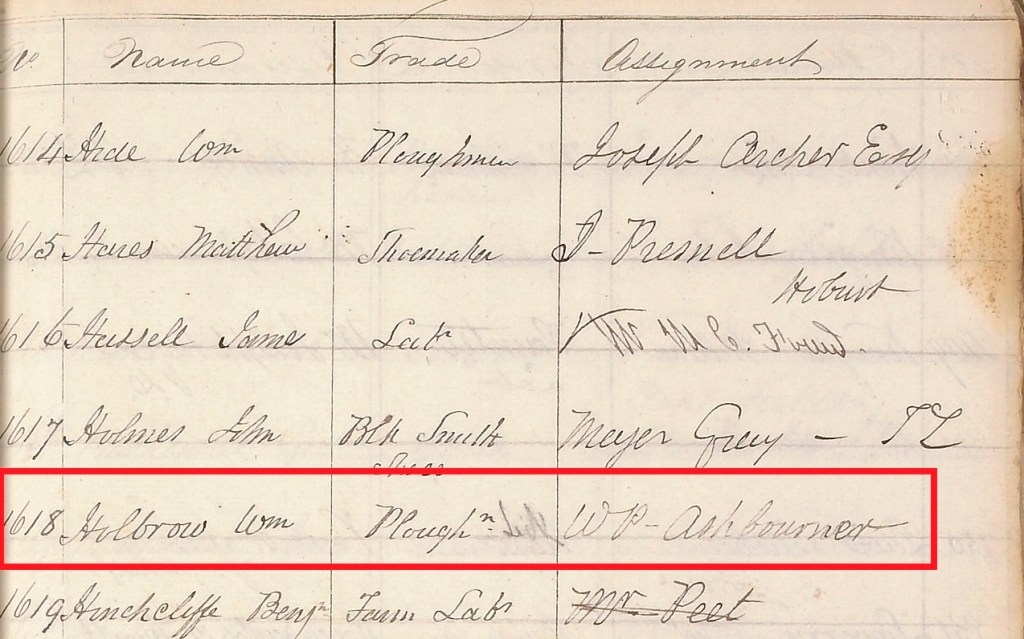 No. Name Trade Assignment
1614 Hide Wm Ploughman Joseph Archer Esq
1615 Hares Matthew Shoemaker J - Presnell
Hobart
1616 Hassell Jame Labr
1617 Holmes John Blk Smith Major Gray - TL
1618 Holbrow Wm Ploughn WP - Ashbourner
1619 Hinchcliffe Benjn Farm Labr Mr Peet